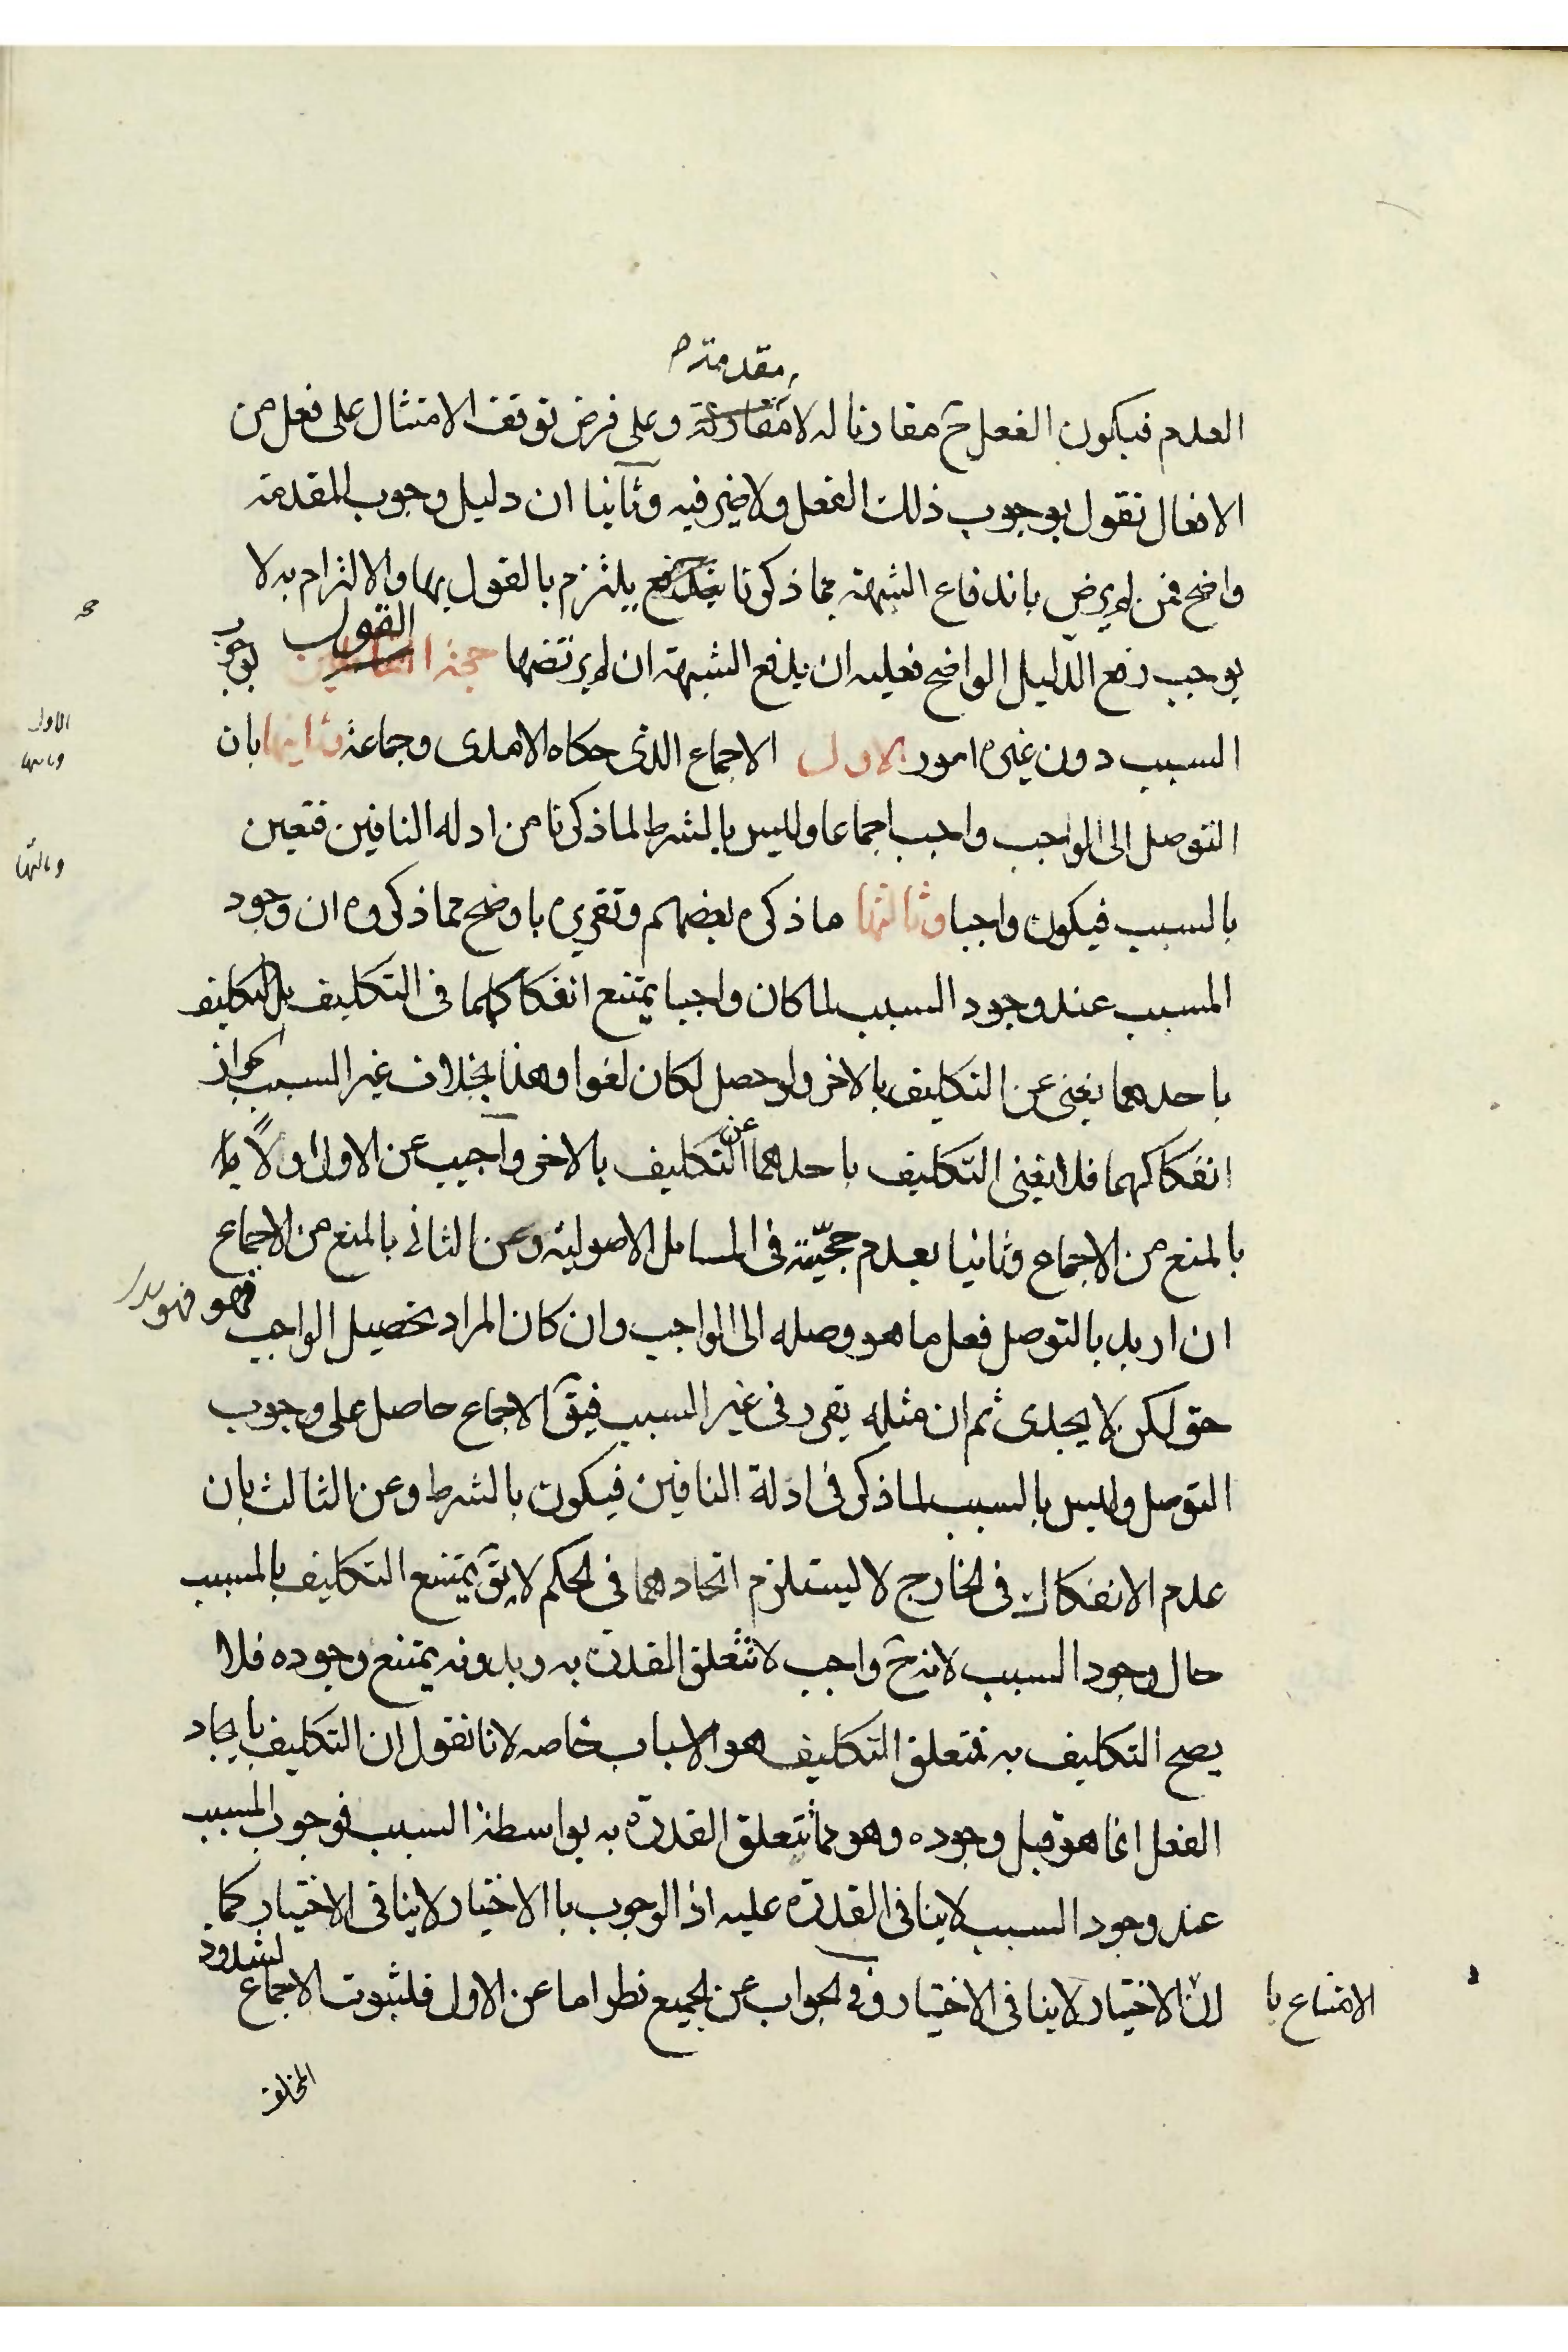 مقدمته
العدم فيكون الفعل ح مقارنا له لا مقارنة وعلى فرض توقف الامتثال على فعل من
الافعال نقول بوجوب ذلك الفعل ولا ضير فيه وثانيا ان دليل وجوب المقدمة
واضح فمن لم يرض باندفاع الشبهة بما ذكرنا يلتزم بالقول بها والالتزام به لا
يوجب رفع الدليل الواضح فعليه ان يدفع الشبهة ان لم يرتضها حجة القول بوجوب
السبب دون غيره امور الاول الاجماع الذى حكاه الامدى وجماعة وثانيها بان
التوصل الى الواجب واجب اجماعا وليس بالشرط لما ذكرنا من ادله النافين فتعين
بالسبب فيكون واجبا وثالثها ما ذكره بعضهم وتقريره باوضح مما ذكروه ان وجود
المسبب عند وجود السبب لما كان واجبا يمتنع انفكاكهما فى التكليف بل التكليف
باحدهما يغنى عن التكليف بالاخر ولو حصل لكان لغوا وهذا بخلاف غير السبب لجواز
انفكاكهما فلا يغنى التكليف باحدهما عن التكليف بالاخر واجيب عن الاول اولا
بالمنع من الاجماع وثانيا بعدم حجيّته فى المسايل الاصولية وعن الثانى بالمنع من الاجماع
ان اريد بالتوصل فعل ما هو وصله الى الواجب وان كان المراد تحصيل الواجب فهو
حق لكن لا يجدى ثم ان مثله يقرر فى غير السبب فيق الاجماع حاصل على وجوب
التوصل وليس بالسبب لما ذكر فى ادلة النافين فيكون بالشرط وعن الثالث بان
عدم الانفكاك فى الخارج لا يستلزم اتحادهما فى الحكم لا يق يمتنع التكليف بالمسبب
حال وجود السبب لانه ح واجب لا تتعلق القدرة به وبدونه يمتنع وجوده فلا
يصح التكليف به فمتعلق التكليف هو الاسباب خاصه لانا نقول ان التكليف بايجاد
الفعل انما هو قبل وجوده وهو مما تتعلق القدرة به بواسطة السبب فوجوب المسبب
عند وجود السبب لا ينافى القدرة عليه اذ الوجوب باالاختيار لا ينافى الاختيار كما
ان الامتناع با لاختيار لا ينافى الاختيار وفى الجواب عن الجميع نظر اما عن الاول فلثبوت الاجماع لشذوذ
المخالف
الاول
وثانيها
وثالثها